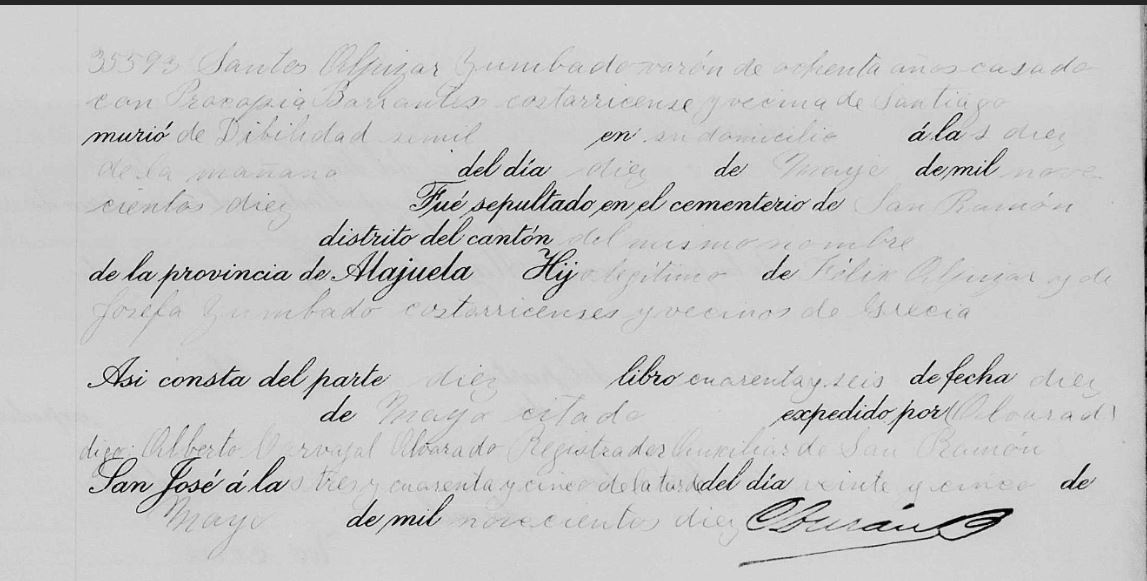 35593 Santos Alpizar Zumbado varón de ochenta años casado
con Procopia Barrantes costarricense y vecina de Santiago
murió de Dibilidad senil en su domicilio á las diez
de la mañana del día diez de Mayo de mil nove
cientos diez Fué sepultado en el cementerio de San Ramón
distrito del cantón del mismo nombre
de la provincia de Alajuela Hijo legítimo de Félix Alpizar y de
Josefa Zumbado costarricenses y vecinos de Grecia
Asi consta del parte diez libro cuarenta y seis de fecha diez
de Mayo citado expedido por (Alvarad
digo: Alberto Carvajal Alvarado Registrador Auxiliar de San Ramón
San José á las tres y cuarenta y cinco de la tarde del día veinte y cinco de
Mayo de mil novecientos diez CDurán